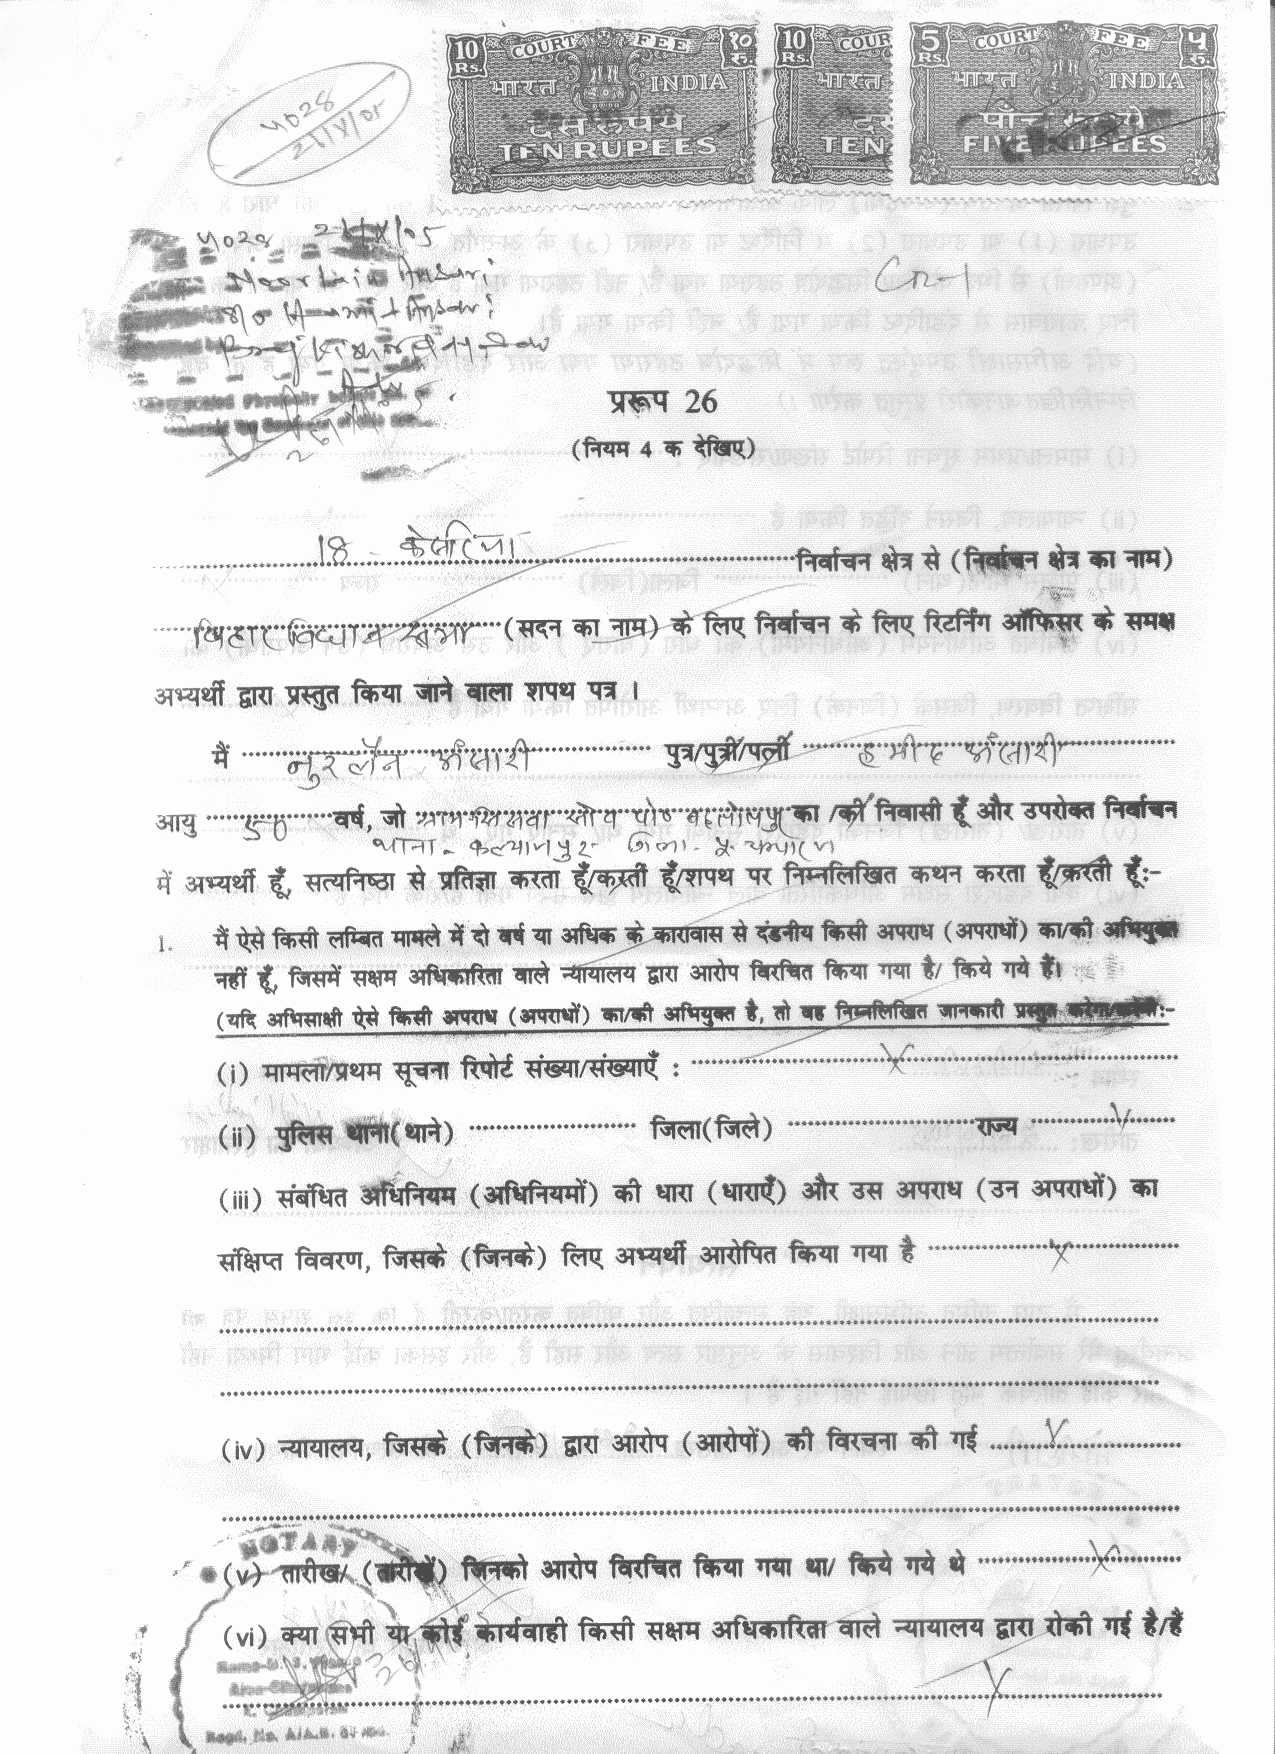 10 Rs. COURT FEE १० रु.
भारत INDIA
दस रुपये
TEN RUPEES
10 Rs. COUR
भारत
TEN
5 Rs. COURT FEE ५ रु.
भारत INDIA
पाँच रुपये
FIVE RUPEES
4028
21/X/05
4028 21/X/05
Ansari
Ansari
प्ररूप 26
(नियम 4 क देखिए)
18 - केसरिया निर्वाचन क्षेत्र से (निर्वाचन क्षेत्र का नाम)
बिहार विधान सभा (सदन का नाम) के लिए निर्वाचन के लिए रिटर्निंग ऑफिसर के समक्ष
अभ्यर्थी द्वारा प्रस्तुत किया जाने वाला शपथ पत्र ।
मैं नुरलैन अंसारी पुत्र/पुत्री/पत्नी हमीद अंसारी
आयु 50 वर्ष, जो का /की निवासी हूँ और उपरोक्त निर्वाचन
थाना - कल्याणपुर जिला - पू. चम्पारण
में अभ्यर्थी हूँ, सत्यनिष्ठा से प्रतिज्ञा करता हूँ/करती हूँ/शपथ पर निम्नलिखित कथन करता हूँ/करती हूँ:-
1. मैं ऐसे किसी लम्बित मामले में दो वर्ष या अधिक के कारावास से दंडनीय किसी अपराध (अपराधों) का/की अभियुक्त
नहीं हूँ, जिसमें सक्षम अधिकारिता वाले न्यायालय द्वारा आरोप विरचित किया गया है/ किये गये हैं।
(यदि अभिसाक्षी ऐसे किसी अपराध (अपराधों) का/की अभियुक्त है, तो वह निम्नलिखित जानकारी प्रस्तुत करेगा/करेगी:-
(i) मामला/प्रथम सूचना रिपोर्ट संख्या/संख्याएँ : X
(ii) पुलिस थाना(थाने) जिला(जिले) राज्य X
(iii) संबंधित अधिनियम (अधिनियमों) की धारा (धाराएँ) और उस अपराध (उन अपराधों) का
संक्षिप्त विवरण, जिसके (जिनके) लिए अभ्यर्थी आरोपित किया गया है X
(iv) न्यायालय, जिसके (जिनके) द्वारा आरोप (आरोपों) की विरचना की गई X
NOTARY
(v) तारीख/ (तारीखें) जिनको आरोप विरचित किया गया था/ किये गये थे X
(vi) क्या सभी या कोई कार्यवाही किसी सक्षम अधिकारिता वाले न्यायालय द्वारा रोकी गई है/हैं
X
Regd. No.